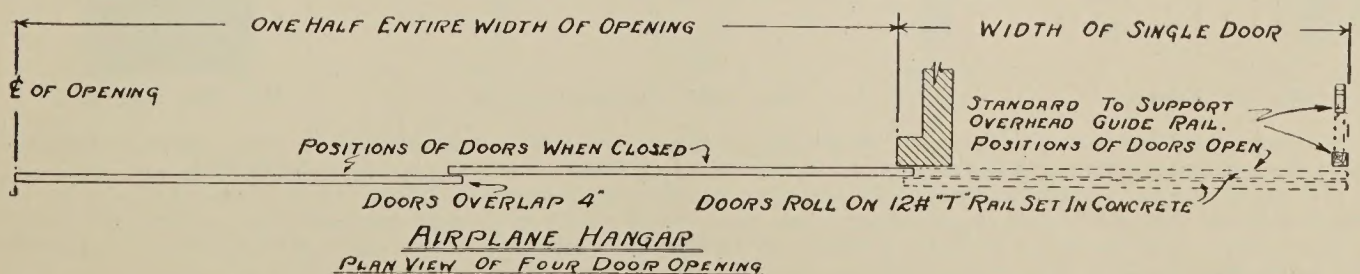 ONE HALF ENTIRE WIDTH OF OPENING
WIDTH OF SINGLE DOOR
℄ OF OPENING
STANDARD TO SUPPORT
OVERHEAD GUIDE RAIL.
POSITIONS OF DOORS OPEN
POSITIONS OF DOORS WHEN CLOSED
DOORS OVERLAP 4"
DOORS ROLL ON 12# "T" RAIL SET IN CONCRETE
AIRPLANE HANGAR
PLAN VIEW OF FOUR DOOR OPENING